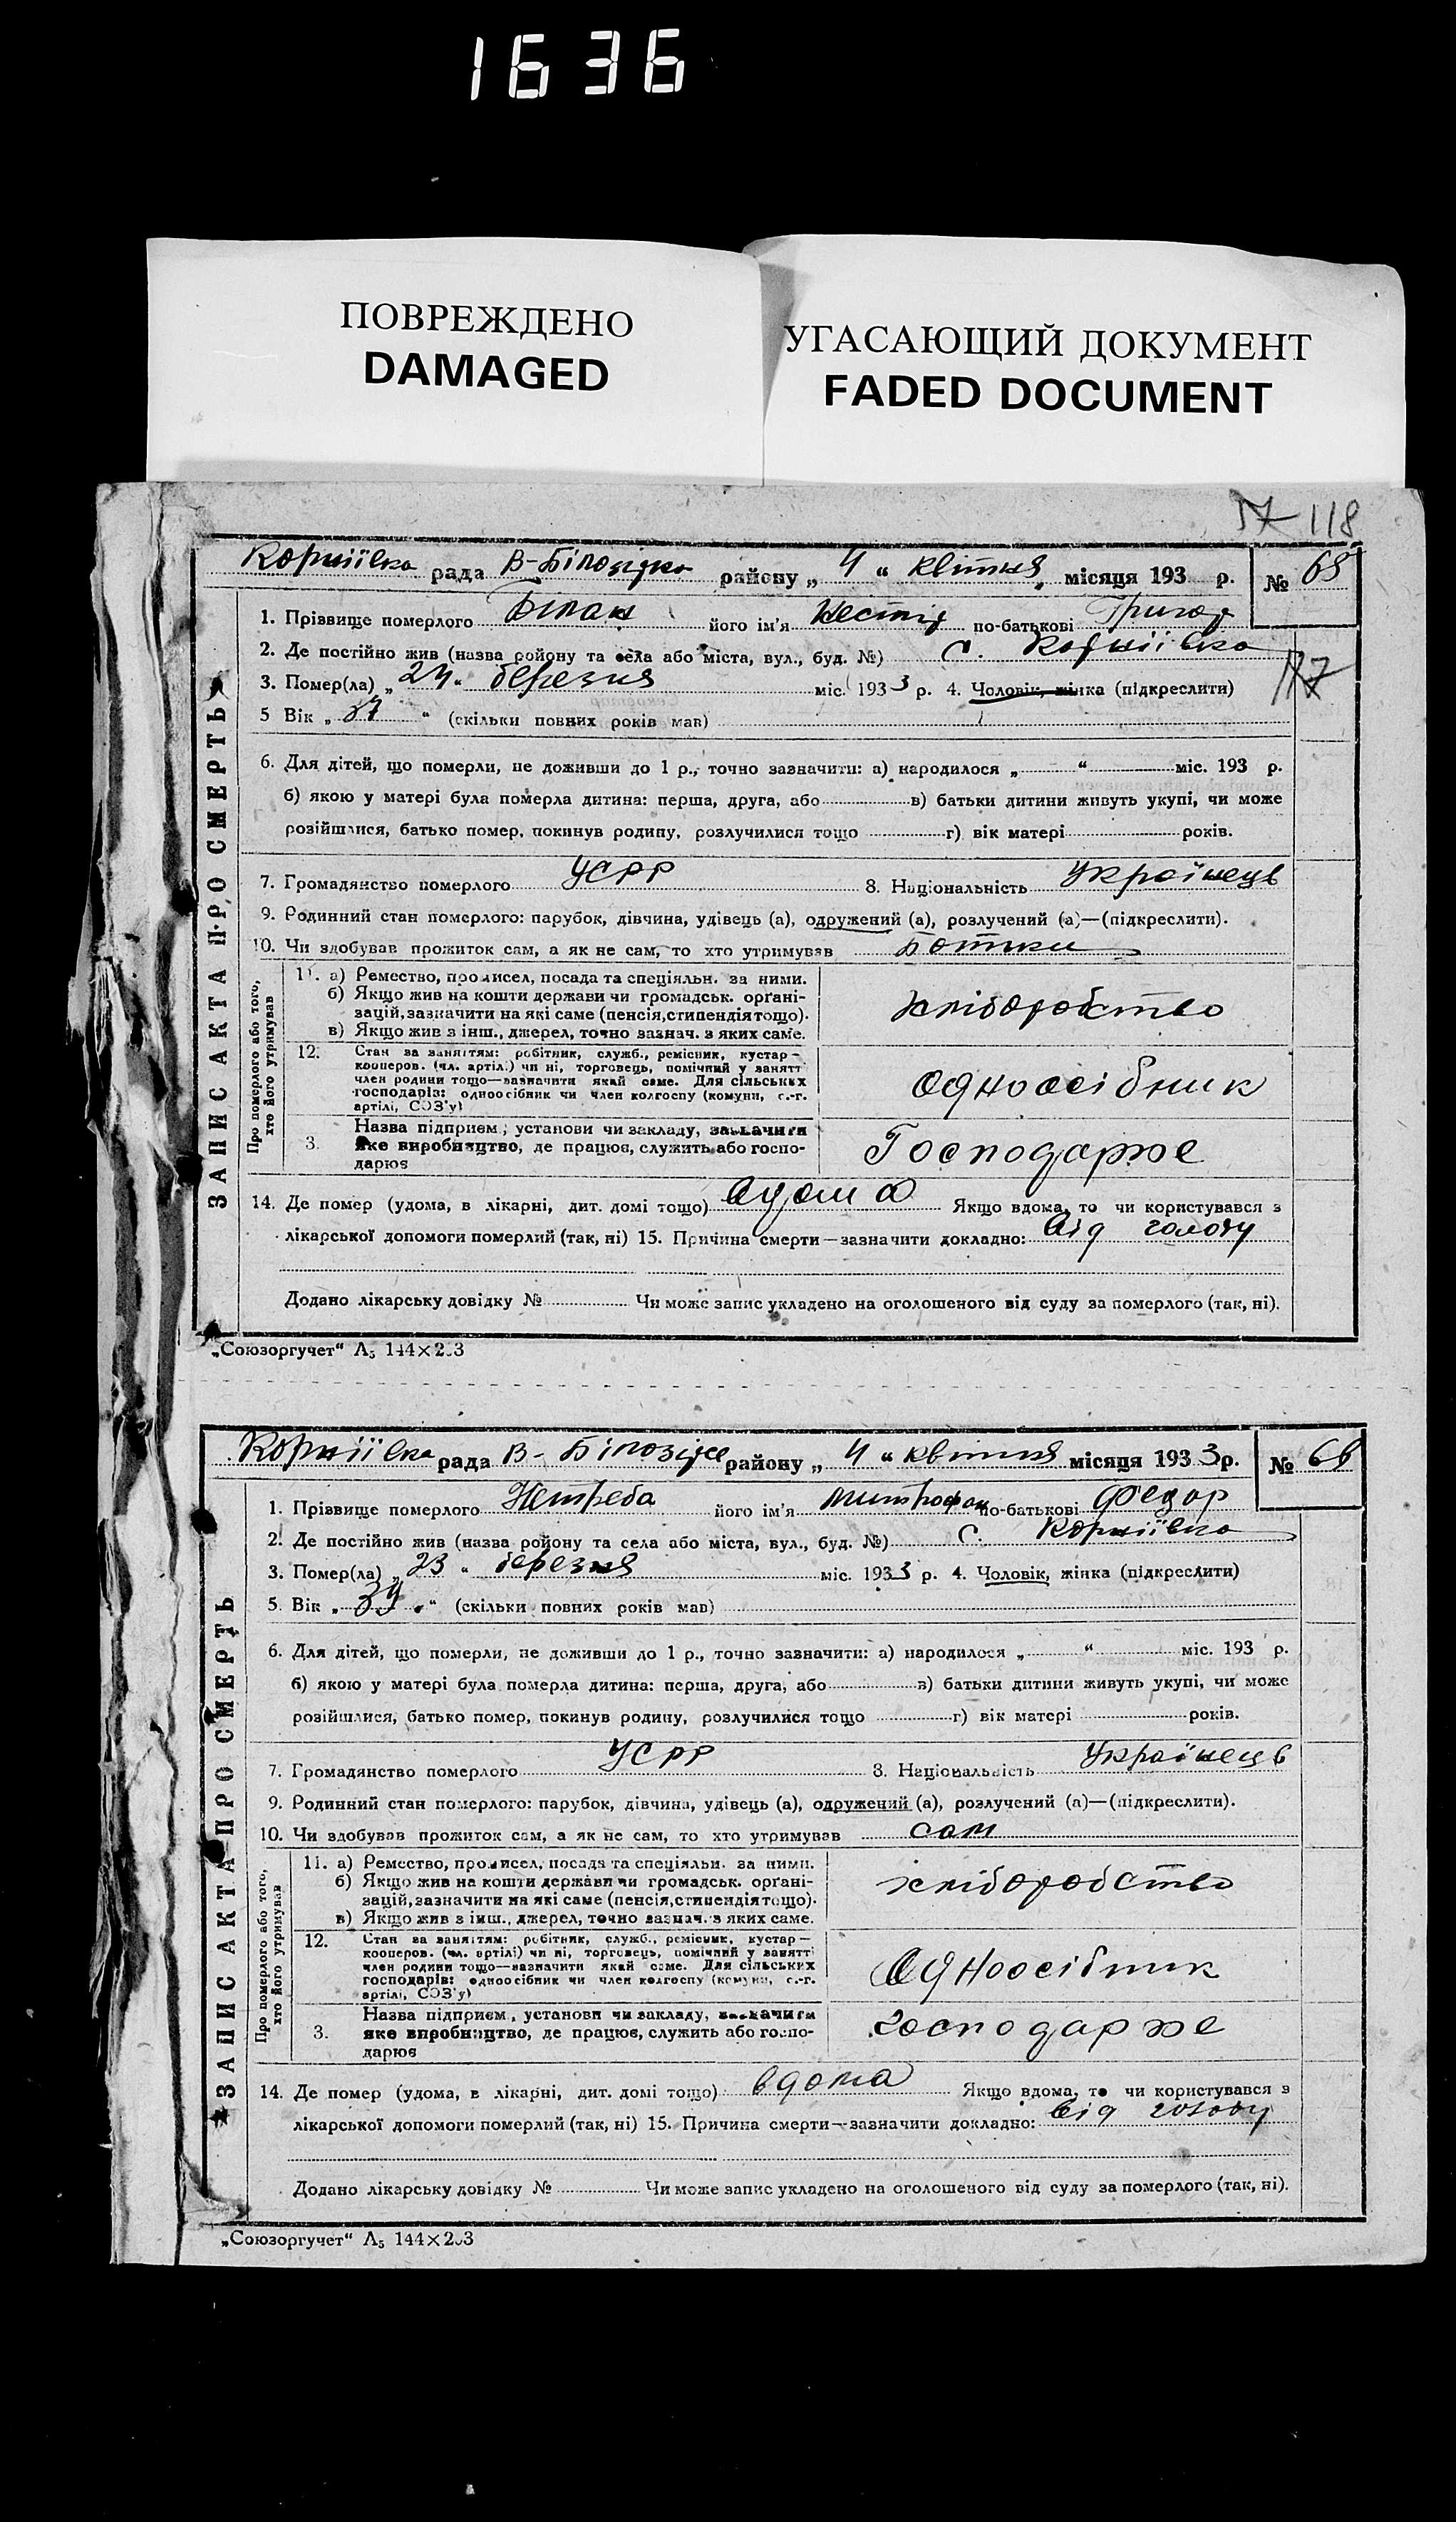 1636
ПОВРЕЖДЕНО
DAMAGED
УГАСАЮЩИЙ ДОКУМЕНТ
FADED DOCUMENT
118
Корніївка рада В-Білозірка району „ 4 “ квітня місяця 193 р. №
1. Прізвище померлого Білан його ім'я Нестір по-батькові Григор
2. Де постійно жив (назва району та села або міста, вул., буд. №) С. Корніївка
3. Помер(ла) „ 24 “ березня міс. 1933 р. 4. Чоловік, жінка (підкреслити)
117
5 Вік „ 37 “ (скільки повних років мав)
6. Для дітей, що померли, не доживши до 1 р., точно зазначити: а) народилося „ “ міс. 193 р.
б) якою у матері була померла дитина: перша, друга, або в) батьки дитини живуть укупі, чи може
розійшлися, батько помер, покинув родину, розлучилися тощо г) вік матері років.
7. Громадянство померлого УСРР 8. Національність Українець
9. Родинний стан померлого: парубок, дівчина, удівець (а), одружений (а), розлучений (а)—(підкреслити).
10. Чи здобував прожиток сам, а як не сам, то хто утримував Батьки
ЗАПИС АКТА ПРО СМЕРТЬ
Про померлого або того, хто його утримував
11. а) Ремество, промисел, посада та спеціяльн. за ними.
б) Якщо жив на кошти держави чи громадськ. орґані-
зацій, зазначити на які саме (пенсія, стипендія тощо).
в) Якщо жив з інш., джерел, точно зазнач. з яких саме.
хліборобство
12. Стан за заняттям: робітник, служб., ремісник, кустар—
кооперов. (чл. артілі) чи ні, торговець, помічний у занятті
член родини тощо—зазначити який саме. Для сільських
господарів: одноосібник чи член колгоспу (комуни, с.-г.
артілі, СОЗ'у)
одноосібник
3. Назва підприєм., установи чи закладу, зазначити
яке виробництво, де працює, служить або госпо-
дарює
Господарює
14. Де помер (удома, в лікарні, дит. домі тощо) вдома Якщо вдома, то чи користувався з
лікарської допомоги померлий (так, ні) 15. Причина смерти—зазначити докладно: від голоду
Додано лікарську довідку № Чи може запис укладено на оголошеного від суду за померлого (так, ні).
„Союзоргучет“ А5 144×203
Корніївка рада В-Білозірка району „ 4 “ квітня місяця 1933 р. № 66
1. Прізвище померлого Нетреба його ім'я Митрофан по-батькові Федор
2. Де постійно жив (назва району та села або міста, вул., буд. №) С. Корніївка
3. Помер(ла) „ 23 “ березня міс. 1933 р. 4. Чоловік, жінка (підкреслити)
5. Вік „ 39 “ (скільки повних років мав)
6. Для дітей, що померли, не доживши до 1 р., точно зазначити: а) народилося „ “ міс. 193 р.
б) якою у матері була померла дитина: перша, друга, або в) батьки дитини живуть укупі, чи може
розійшлися, батько помер, покинув родину, розлучилися тощо г) вік матері років.
7. Громадянство померлого УСРР 8. Національність Українець
9. Родинний стан померлого: парубок, дівчина, удівець (а), одружений (а), розлучений (а)—(підкреслити).
10. Чи здобував прожиток сам, а як не сам, то хто утримував сам
ЗАПИС АКТА ПРО СМЕРТЬ
Про померлого або того, хто його утримував
11. а) Ремество, промисел, посада та спеціяльн. за ними.
б) Якщо жив на кошти держави чи громадськ. орґані-
зацій, зазначити на які саме (пенсія, стипендія тощо).
в) Якщо жив з інш., джерел, точно зазнач. з яких саме.
хліборобство
12. Стан за заняттям: робітник, служб., ремісник, кустар—
кооперов. (чл. артілі) чи ні, торговець, помічний у занятті
член родини тощо—зазначити який саме. Для сільських
господарів: одноосібник чи член колгоспу (комуни, с.-г.
артілі, СОЗ'у)
Одноосібник
3. Назва підприєм., установи чи закладу, зазначити
яке виробництво, де працює, служить або госпо-
дарює
господарює
14. Де помер (удома, в лікарні, дит. домі тощо) вдома Якщо вдома, то чи користувався з
лікарської допомоги померлий (так, ні) 15. Причина смерти—зазначити докладно: від голоду
Додано лікарську довідку № Чи може запис укладено на оголошеного від суду за померлого (так, ні).
„Союзоргучет“ А5 144×203